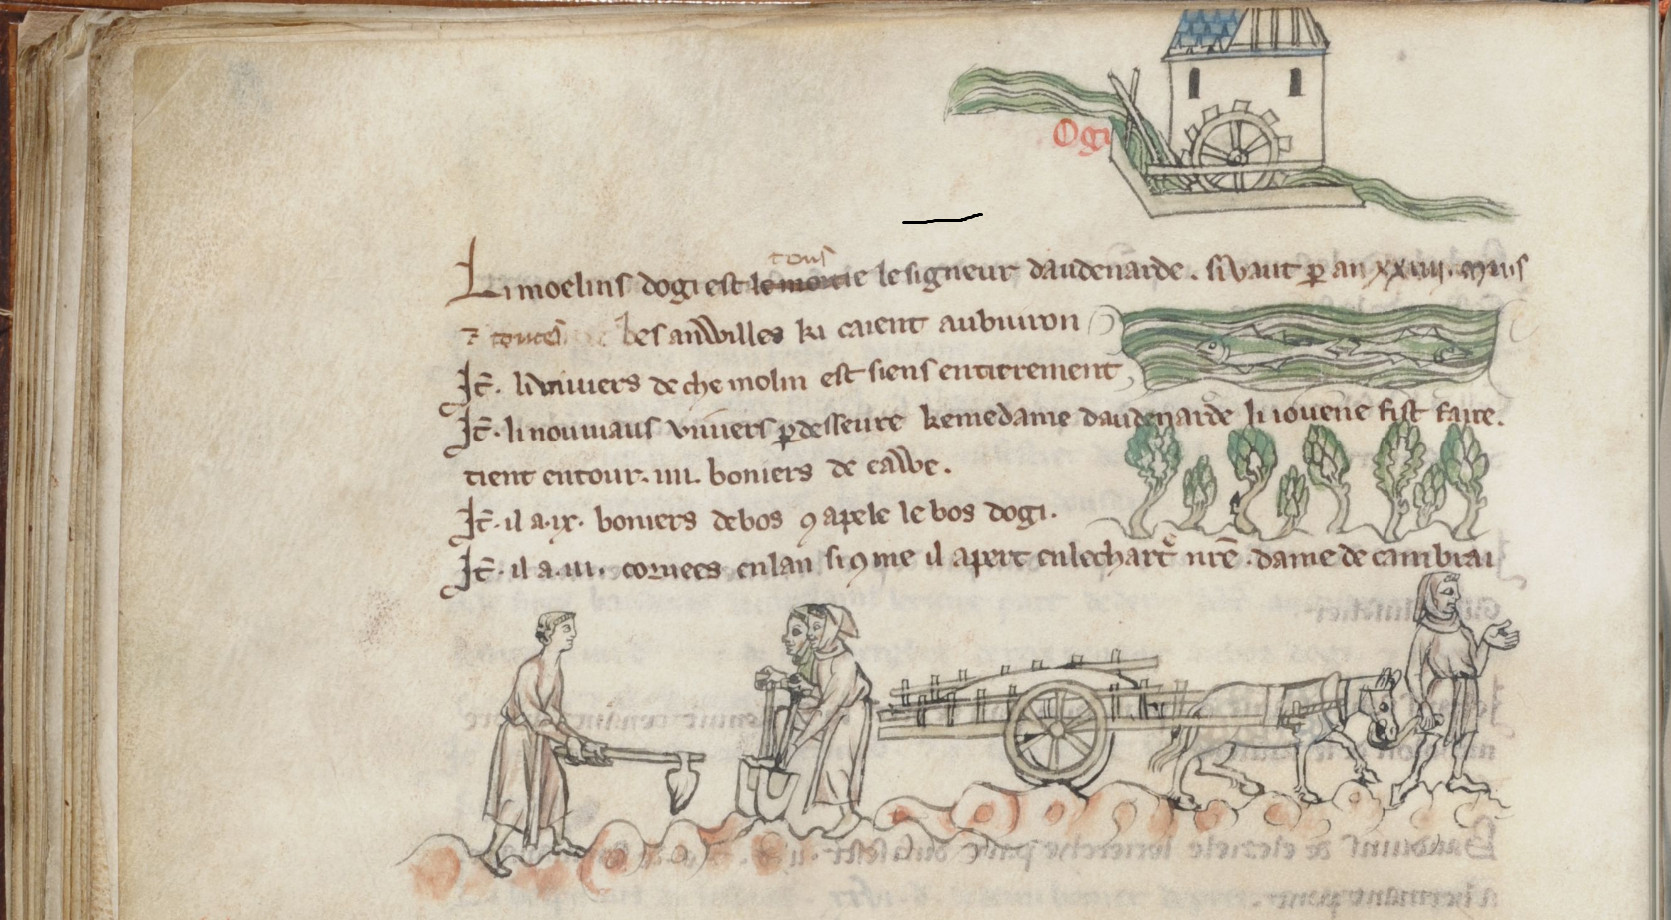 Ogi
tous
Li moelins dogi est le moitie le signeur daudenarde. si vaut p an xxiiii. muis
⁊ toutes les anwilles ki caient au buiron
It̃. li viviers de che molin est siens entirement
It̃. li nouviaus viviers p desseure ke me dame daudenarde li iovene fist faire.
tient entour. iiii. boniers de eawe.
It̃. il a .ix. boniers de bos ꝯ apele le bos dogi.
It̃. il a .iii. corvees en lan si ꝯme il apert en le chartr̃ nr̃e dame de cambrai